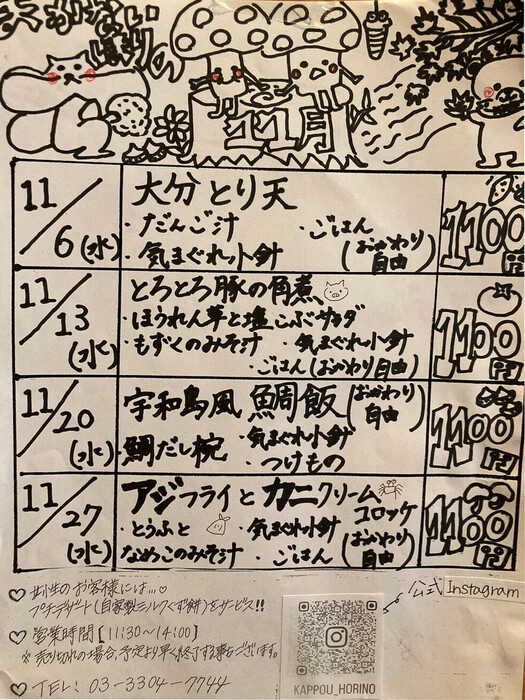 11月
11/6(水)
大分とり天
・だんご汁 ・ごはん
・気まぐれ小鉢 (おかわり自由)
1100円
11/13(水)
とろとろ豚の角煮、
・ほうれん草と塩こぶサラダ
・もずくのみそ汁 ・気まぐれ小針
・ごはん(おかわり自由)
1100円
11/20(水)
宇和島風 鯛飯(おかわり自由)
・鯛だし椀 ・気まぐれ小針
・つけもの
1100円
11/27(水)
アジフライとカニクリームコロッケ
・とうふと ・気まぐれ小針
なめこのみそ汁 ・ごはん(おかわり自由)
1100円
♡ 女性のお客様には...♡
プチデザート(自家製ミルクくず餅)をサービス!!
♡ 営業時間[11:30〜14:00]
※売り切れの場合、予定より早く終了する事もございます。
♡ TEL: 03-3304-7744
公式 Instagram
KAPPOU_HORINO